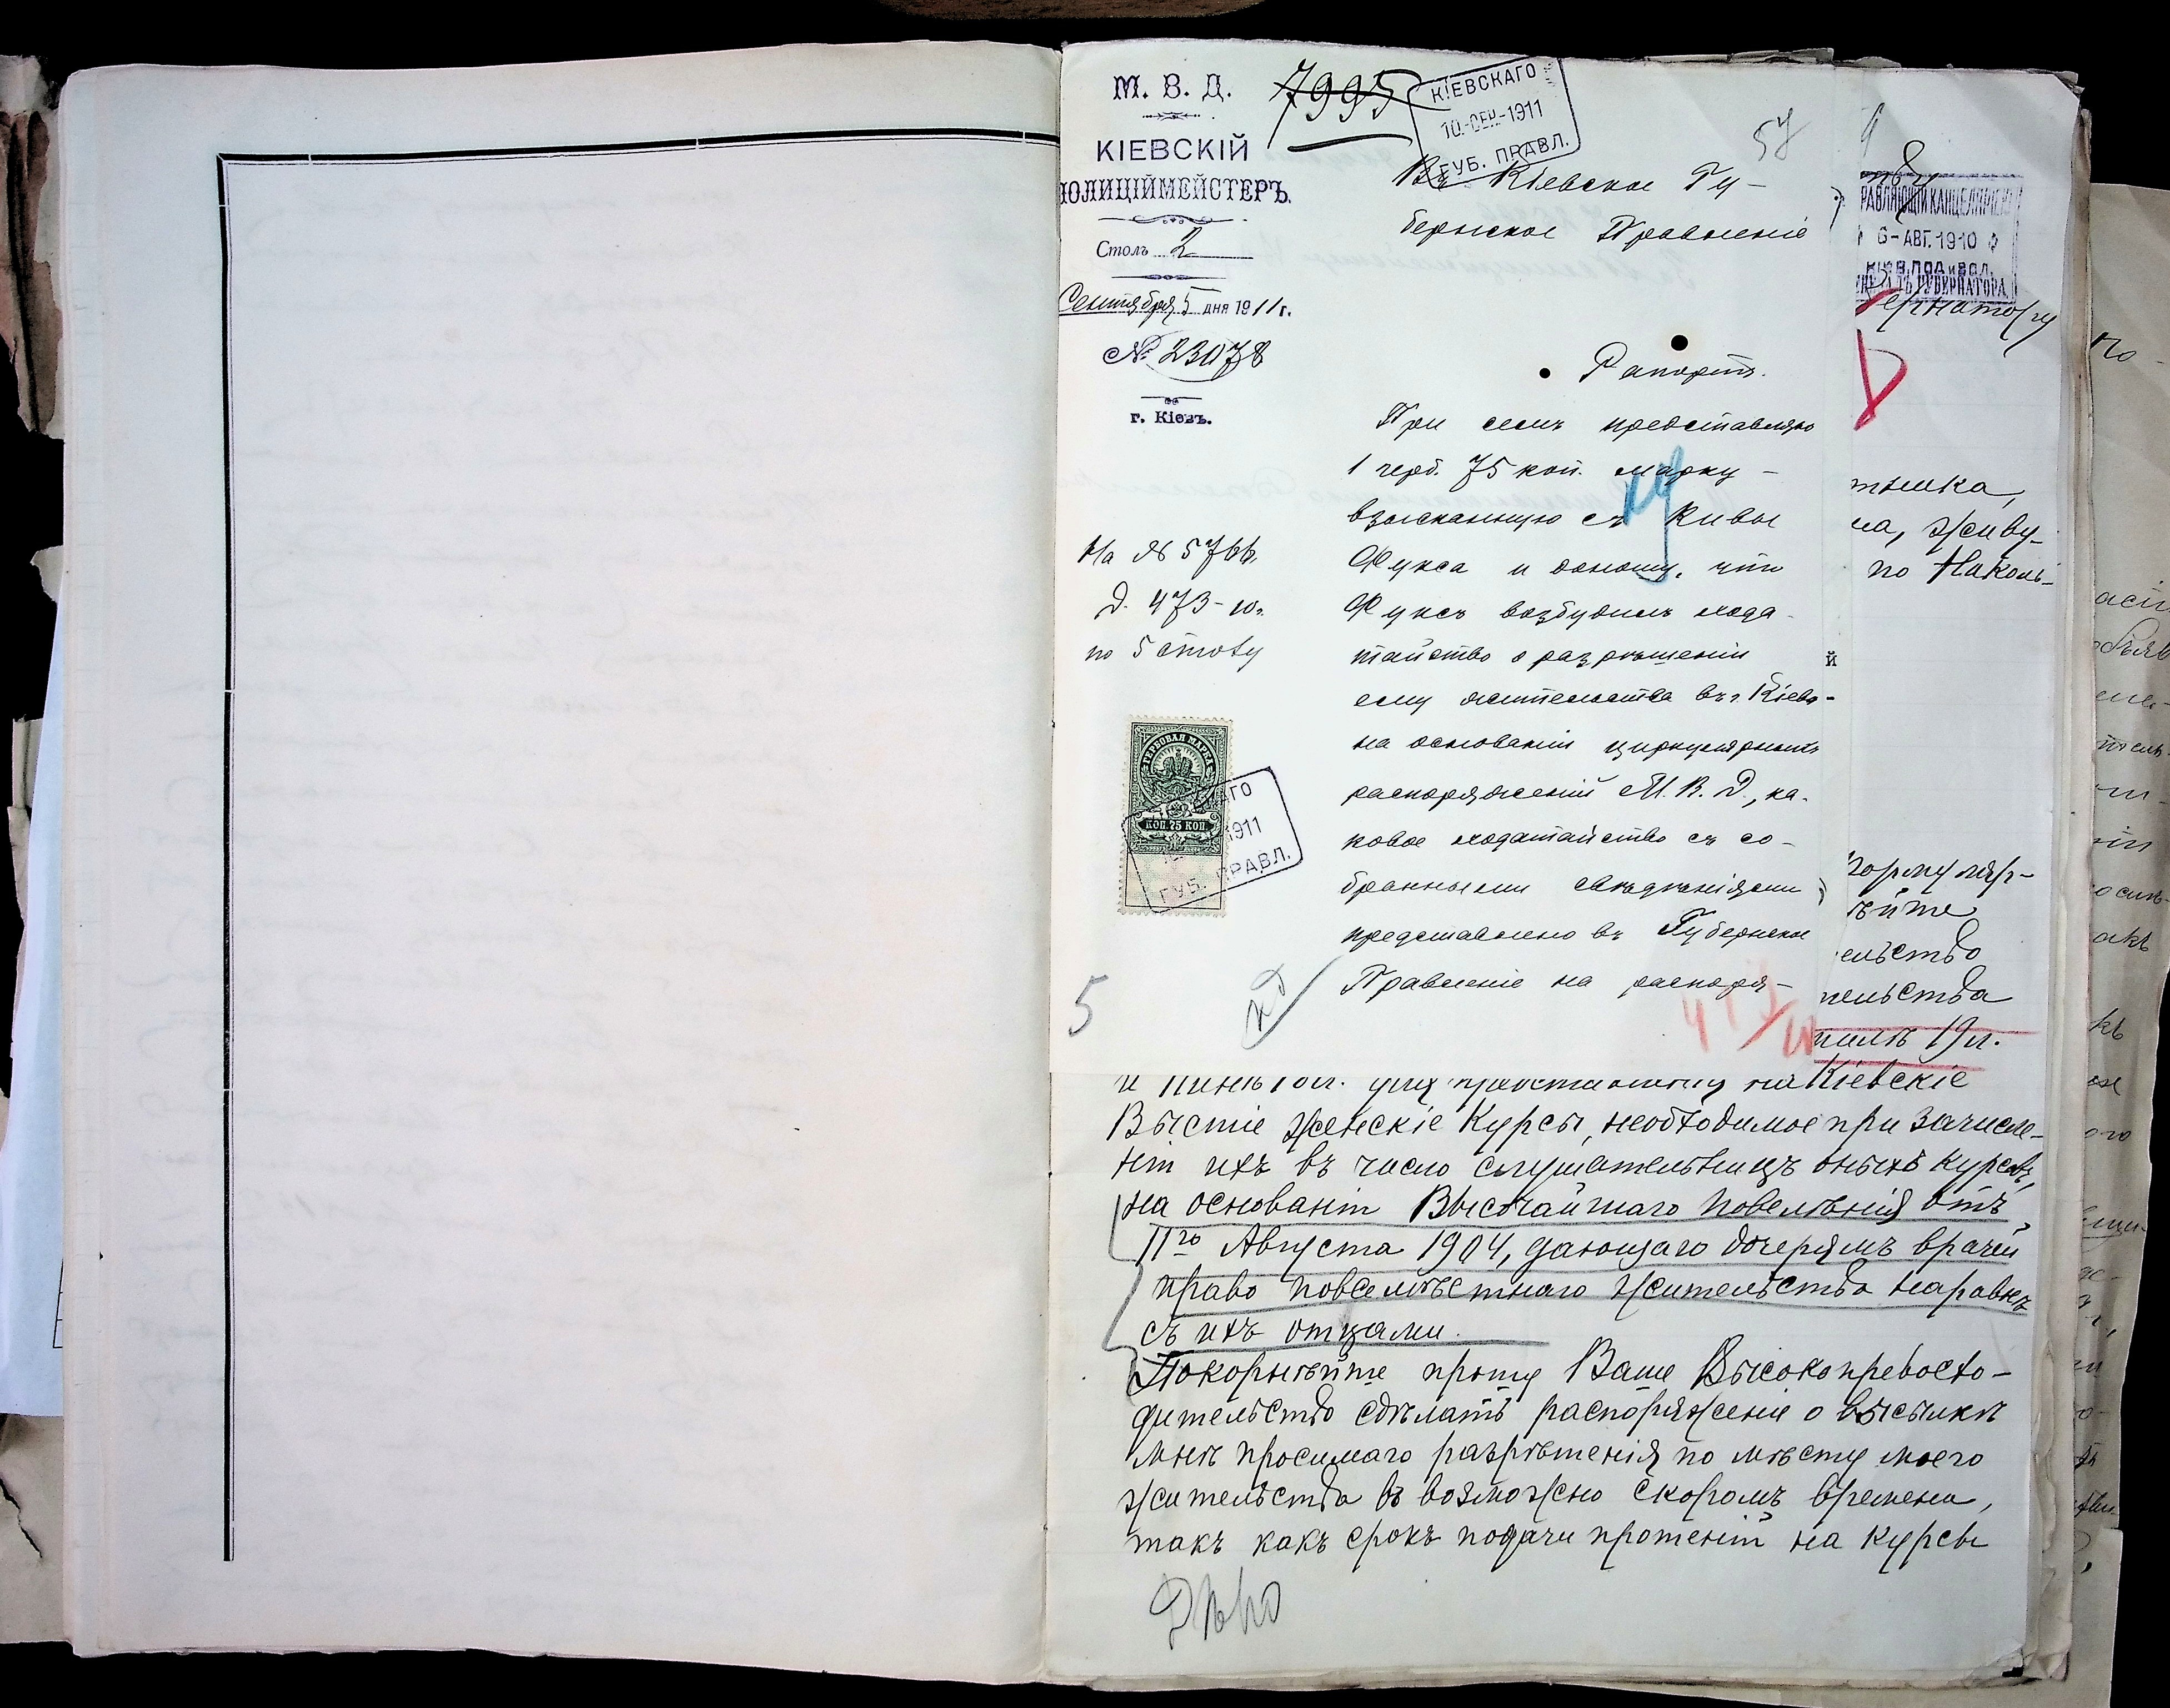 М. В. Д.
КІЕВСКІЙ
ПОЛИЦІЙМЕЙСТЕРЪ.
Столъ 2
Сентября 5 дня 1911 г.
№ 23078
г. Кіевъ.
7995
КІЕВСКАГО
10-СЕН-1911
ГУБ. ПРАВЛ.
57
Въ Кіевское Гу-
бернское Правленіе
Рапортъ.
При семъ представляю
1 герб. 75 коп. марку
взысканную съ Кивы
Фукса и доношу, что
Фуксъ возбудилъ хода-
тайство о разрѣшеніи
ему жительства въ г. Кіевѣ
на основаніи циркулярныхъ
распоряженій М. В. Д., ка-
ковое ходатайство съ со-
бранными свѣдѣніями
представлено въ Губернское
Правленіе на распоря-
На № 5766.
Д. 473-10.
по 5 столу
ГЕРБОВАЯ МАРКА
КОП. 75 КОП.
АГО
1911
ГУБ. ПРАВЛ.
5
РАВЛЯЮЩІЙ КАНЦЕЛЯРІЕЮ
6-АВГ. 1910
КІЕВ. ПОД. и ВОЛ.
ГУБЕРНАТОРА
ернатору
тышка,
на, живу-
по Николь-
й
ѣйше
ельство
тельства
19 л.
на Кіевскіе
Высшіе женскіе Курсы, необходимое при зачисле-
ніи ихъ въ число слушательницъ оныхъ курсовъ,
на основаніи Высочайшаго повелѣнія отъ
11го Августа 1904, дающаго дочерямъ врачей
право повсемѣстнаго жительства наравнѣ
съ ихъ отцами.
Покорнѣйше прошу Ваше Высокопревосхо-
дительство сдѣлать распоряженіе о высылкѣ
мнѣ просимаго разрѣшенія по мѣсту моего
жительства въ возможно скоромъ времени,
такъ какъ срокъ подачи прошеній на курсы